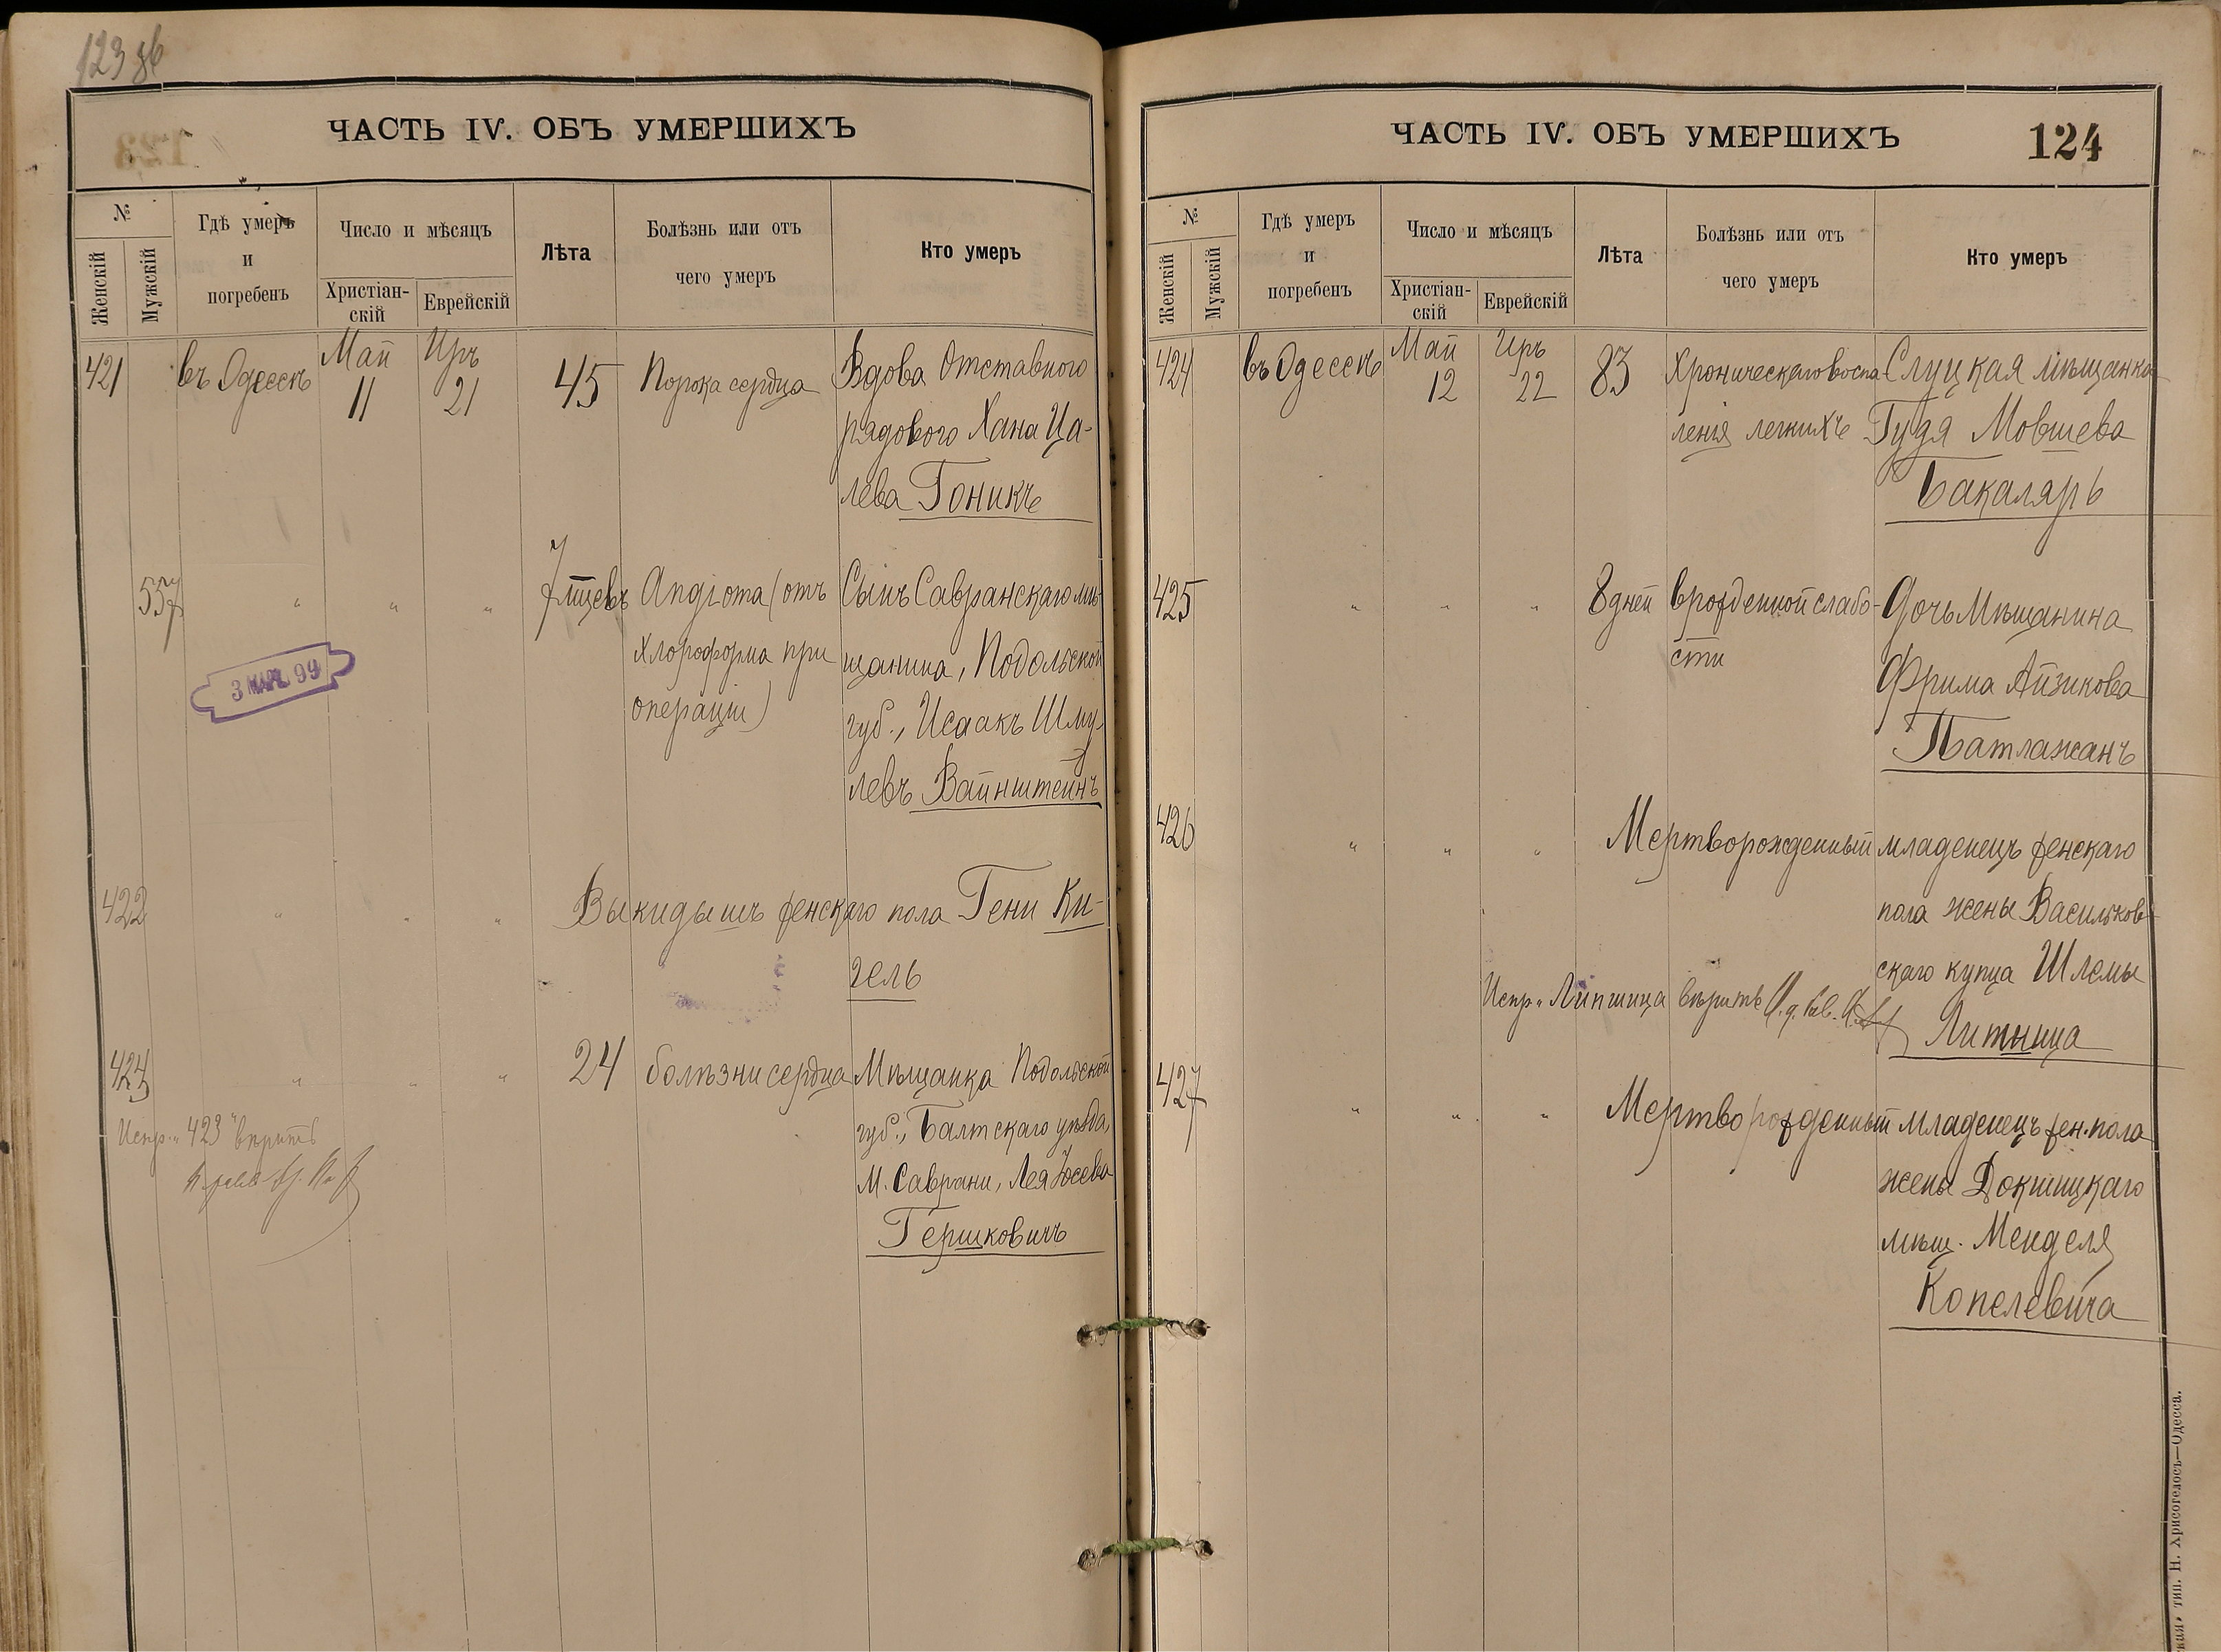 123 об
ЧАСТЬ IV. ОБЪ УМЕРШИХЪ
№
Женскій
Мужскій
Гдѣ умеръ
и
погребенъ
Число и мѣсяцъ
Христіан-
скій
Еврейскій
Лѣта
Болѣзнь или отъ
чего умеръ
Кто умеръ
421 въ Одессѣ Май 11 Иръ 21 45 Порока сердца Вдова Отставного
рядового Хана Ца-
лева Гоникъ
557 " " " 7 мцевъ (отъ Сынъ Савранскаго мѣ-
хлороформа при щанина, Подольской
операціи) губ., Исаакъ Шму-
левъ Вайнштейнъ
3 МАР. 99
422 " " " Выкидышъ женскаго пола Гени Ки-
гель
424 " " " 24 болѣзни сердца Мѣщанка Подольской
Испр. "423" вѣрить губ., Балтскаго уѣзда,
М. Саврани, Лея Іосева
Гершковичъ
ЧАСТЬ IV. ОБЪ УМЕРШИХЪ
124
№
Женскій
Мужскій
Гдѣ умеръ
и
погребенъ
Число и мѣсяцъ
Христіан-
скій
Еврейскій
Лѣта
Болѣзнь или отъ
чего умеръ
Кто умеръ
424 въ Одессѣ Май 12 Иръ 22 83 Хроническаго воспа- Слуцкая мѣщанка
ленія легкихъ Гудя Мовшева
Бакаляръ
425 " " " 8 дней врожденной слабо- Дочь Мѣщанина
сти Фрима Айзикова
Патлажанъ
426 " " " Мертворожденный младенецъ женскаго
пола жены Васильков-
скаго купца Шлемы
Испр. Липшица вѣрить Литница
427 " " " Мертворожденный младенецъ жен. пола
жены Докшицкаго
мѣщ. Менделя
Копелевича
тип. Н. Хрисогелосъ—Одесса.